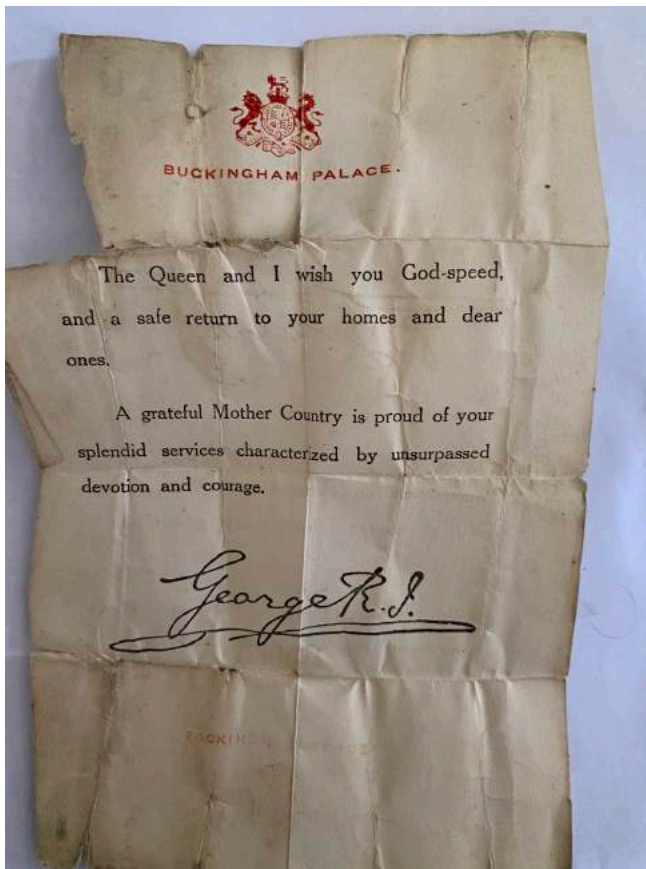 BUCKINGHAM PALACE.
The Queen and I wish you God-speed,
and a safe return to your homes and dear
ones.
A grateful Mother Country is proud of your
splendid services characterized by unsurpassed
devotion and courage.
George R.I.